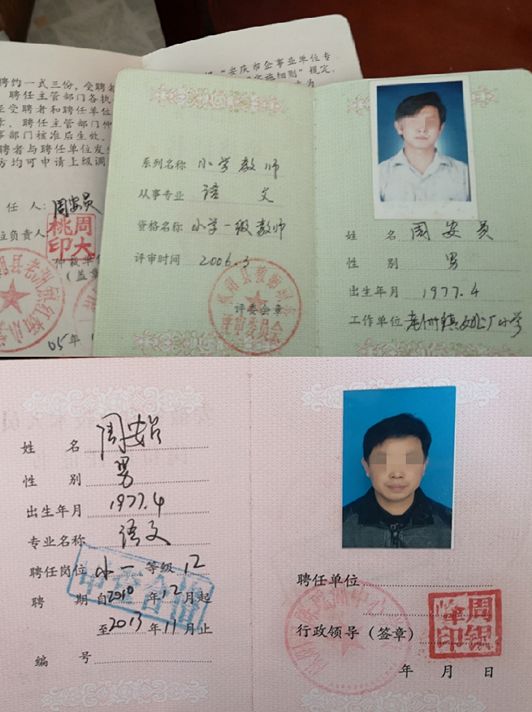 "安庆市企事业单位专
聘约一式三份，受聘者
聘任主管部门各执
受聘者和聘任单位
聘任主管部门
事部门核准后生效
聘者与聘任单位发生
方均可申请上级调
任 人：周安员
位负责人
系列名称 小学教师
从事专业 语文
资格名称 小学一级教师
评审时间 2006.3
评委会章
姓 名 周安员
性 别 男
出生年月 1977.4
工作单位
姓 名 周安员
性 别 男
出生年月 1977.4
专业名称 语文
聘任岗位 小一 等级 12
聘 期 自2010年12月起
至2013年11月止
编 号
聘任单位
行政领导（签章）
年 月 日